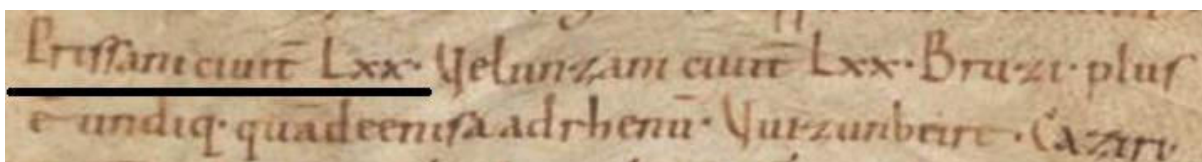 Prissani ciuit̄ Lxx· Velunzani ciuit̄ Lxx· Bruzi· plus
ē undiq· quā deenisa adrhenū· Vuizunbeire· Caziri·